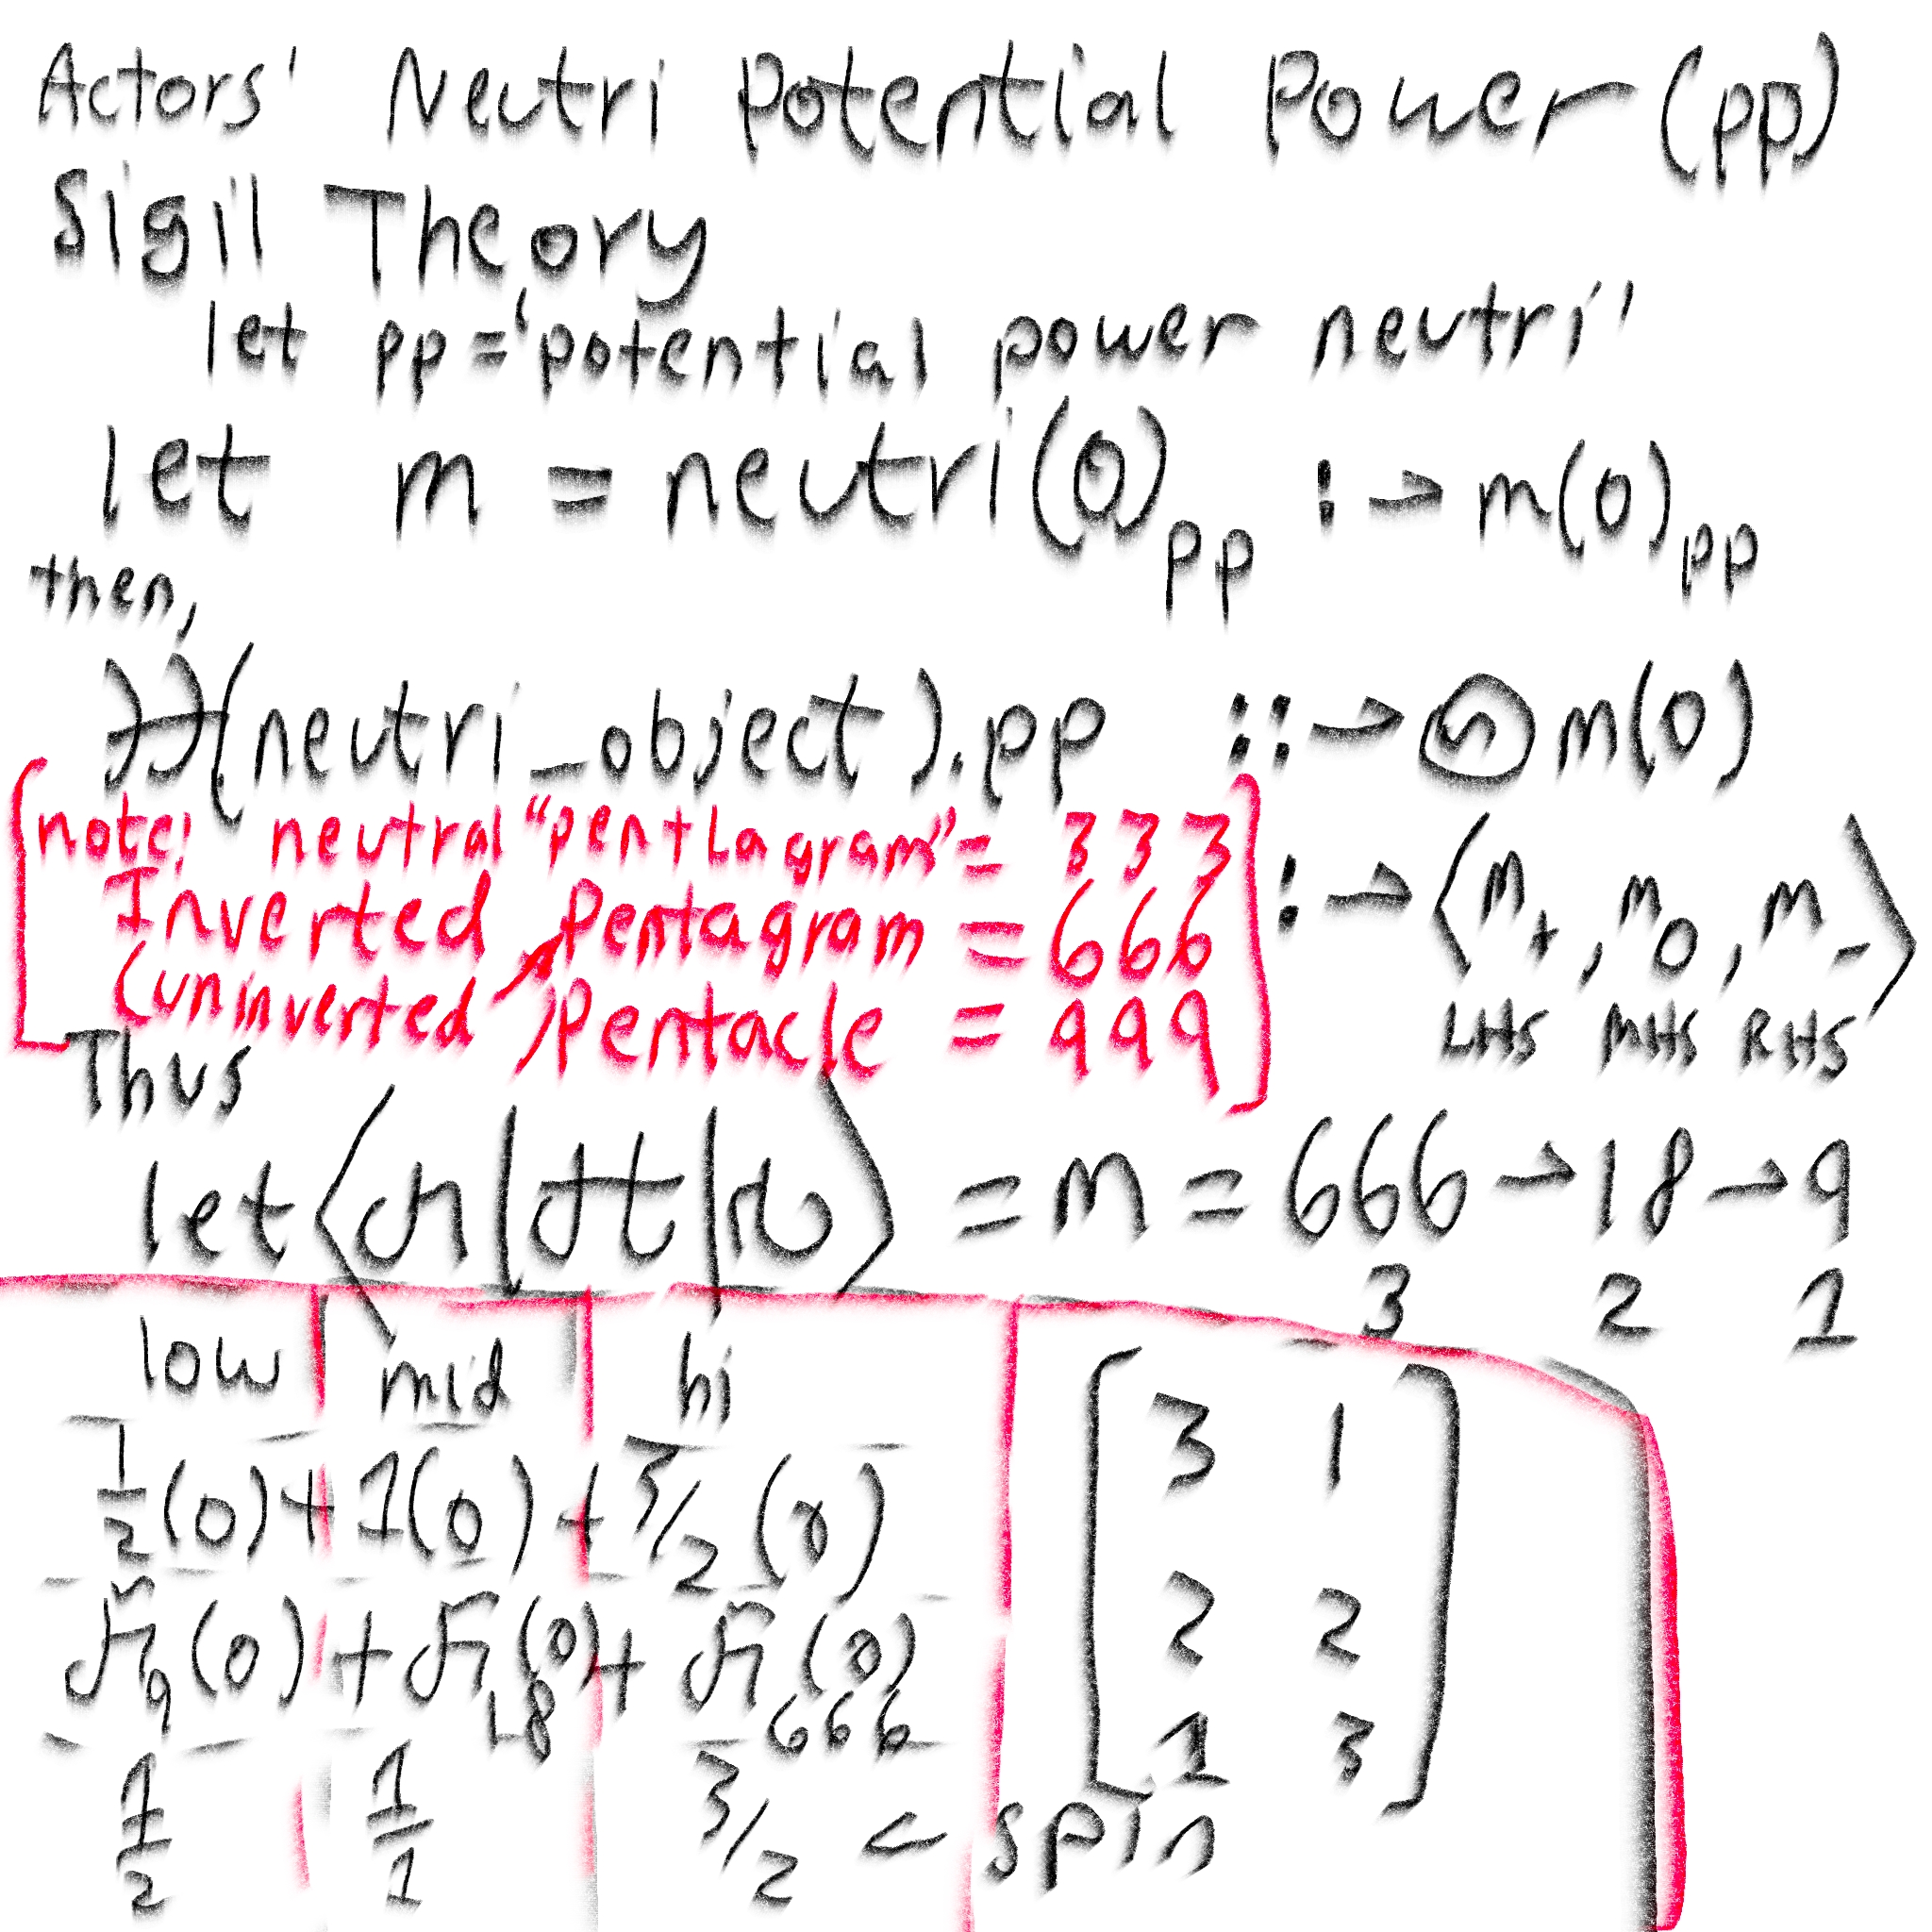 Actors' Neutri Potential Power (pp)
Sigil Theory
let pp = 'potential power neutri'
let m = neutri(0)pp :→ m(0)pp
then,
(neutri_object).pp ::→ m(0)
[note: neutral "pentlagram" = 333
Inverted Pentagram = 666
(uninverted) Pentacle = 999]
:→ ⟨m+, m0, m-⟩
LHS MHS RHS
Thus
let ⟨ | | ⟩ = m = 666 → 18 → 9
3 2 1
low mid hi
1/2 (0) + 1(0) + 3/2 (γ)
9 (0) + 18 (0) + 666 (0)
1/2 1/1 3/2 < spin
[3 1
2 2
1 3]